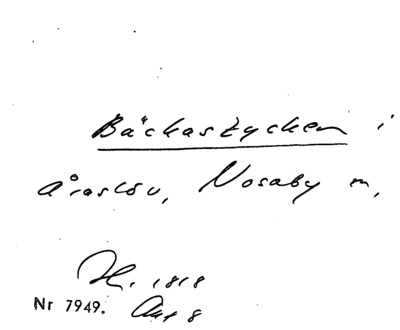 Bäckastycken i
Åraslöv, Nosaby m,
H. 1818
Nr 7949. Akt 8